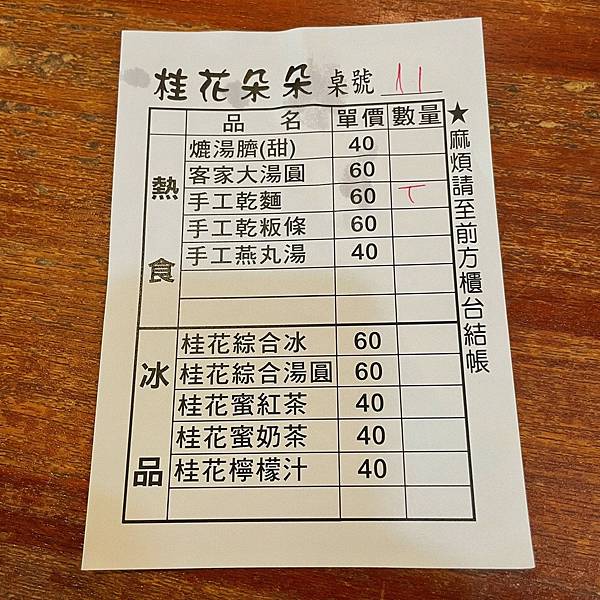 桂花朵朵 桌號 11
品 名 單價 數量
熱食
熝湯臍(甜) 40
客家大湯圓 60
手工乾麵 60 ㄒ
手工乾粄條 60
手工燕丸湯 40
冰品
桂花綜合冰 60
桂花綜合湯圓 60
桂花蜜紅茶 40
桂花蜜奶茶 40
桂花檸檬汁 40
★麻煩請至前方櫃台結帳